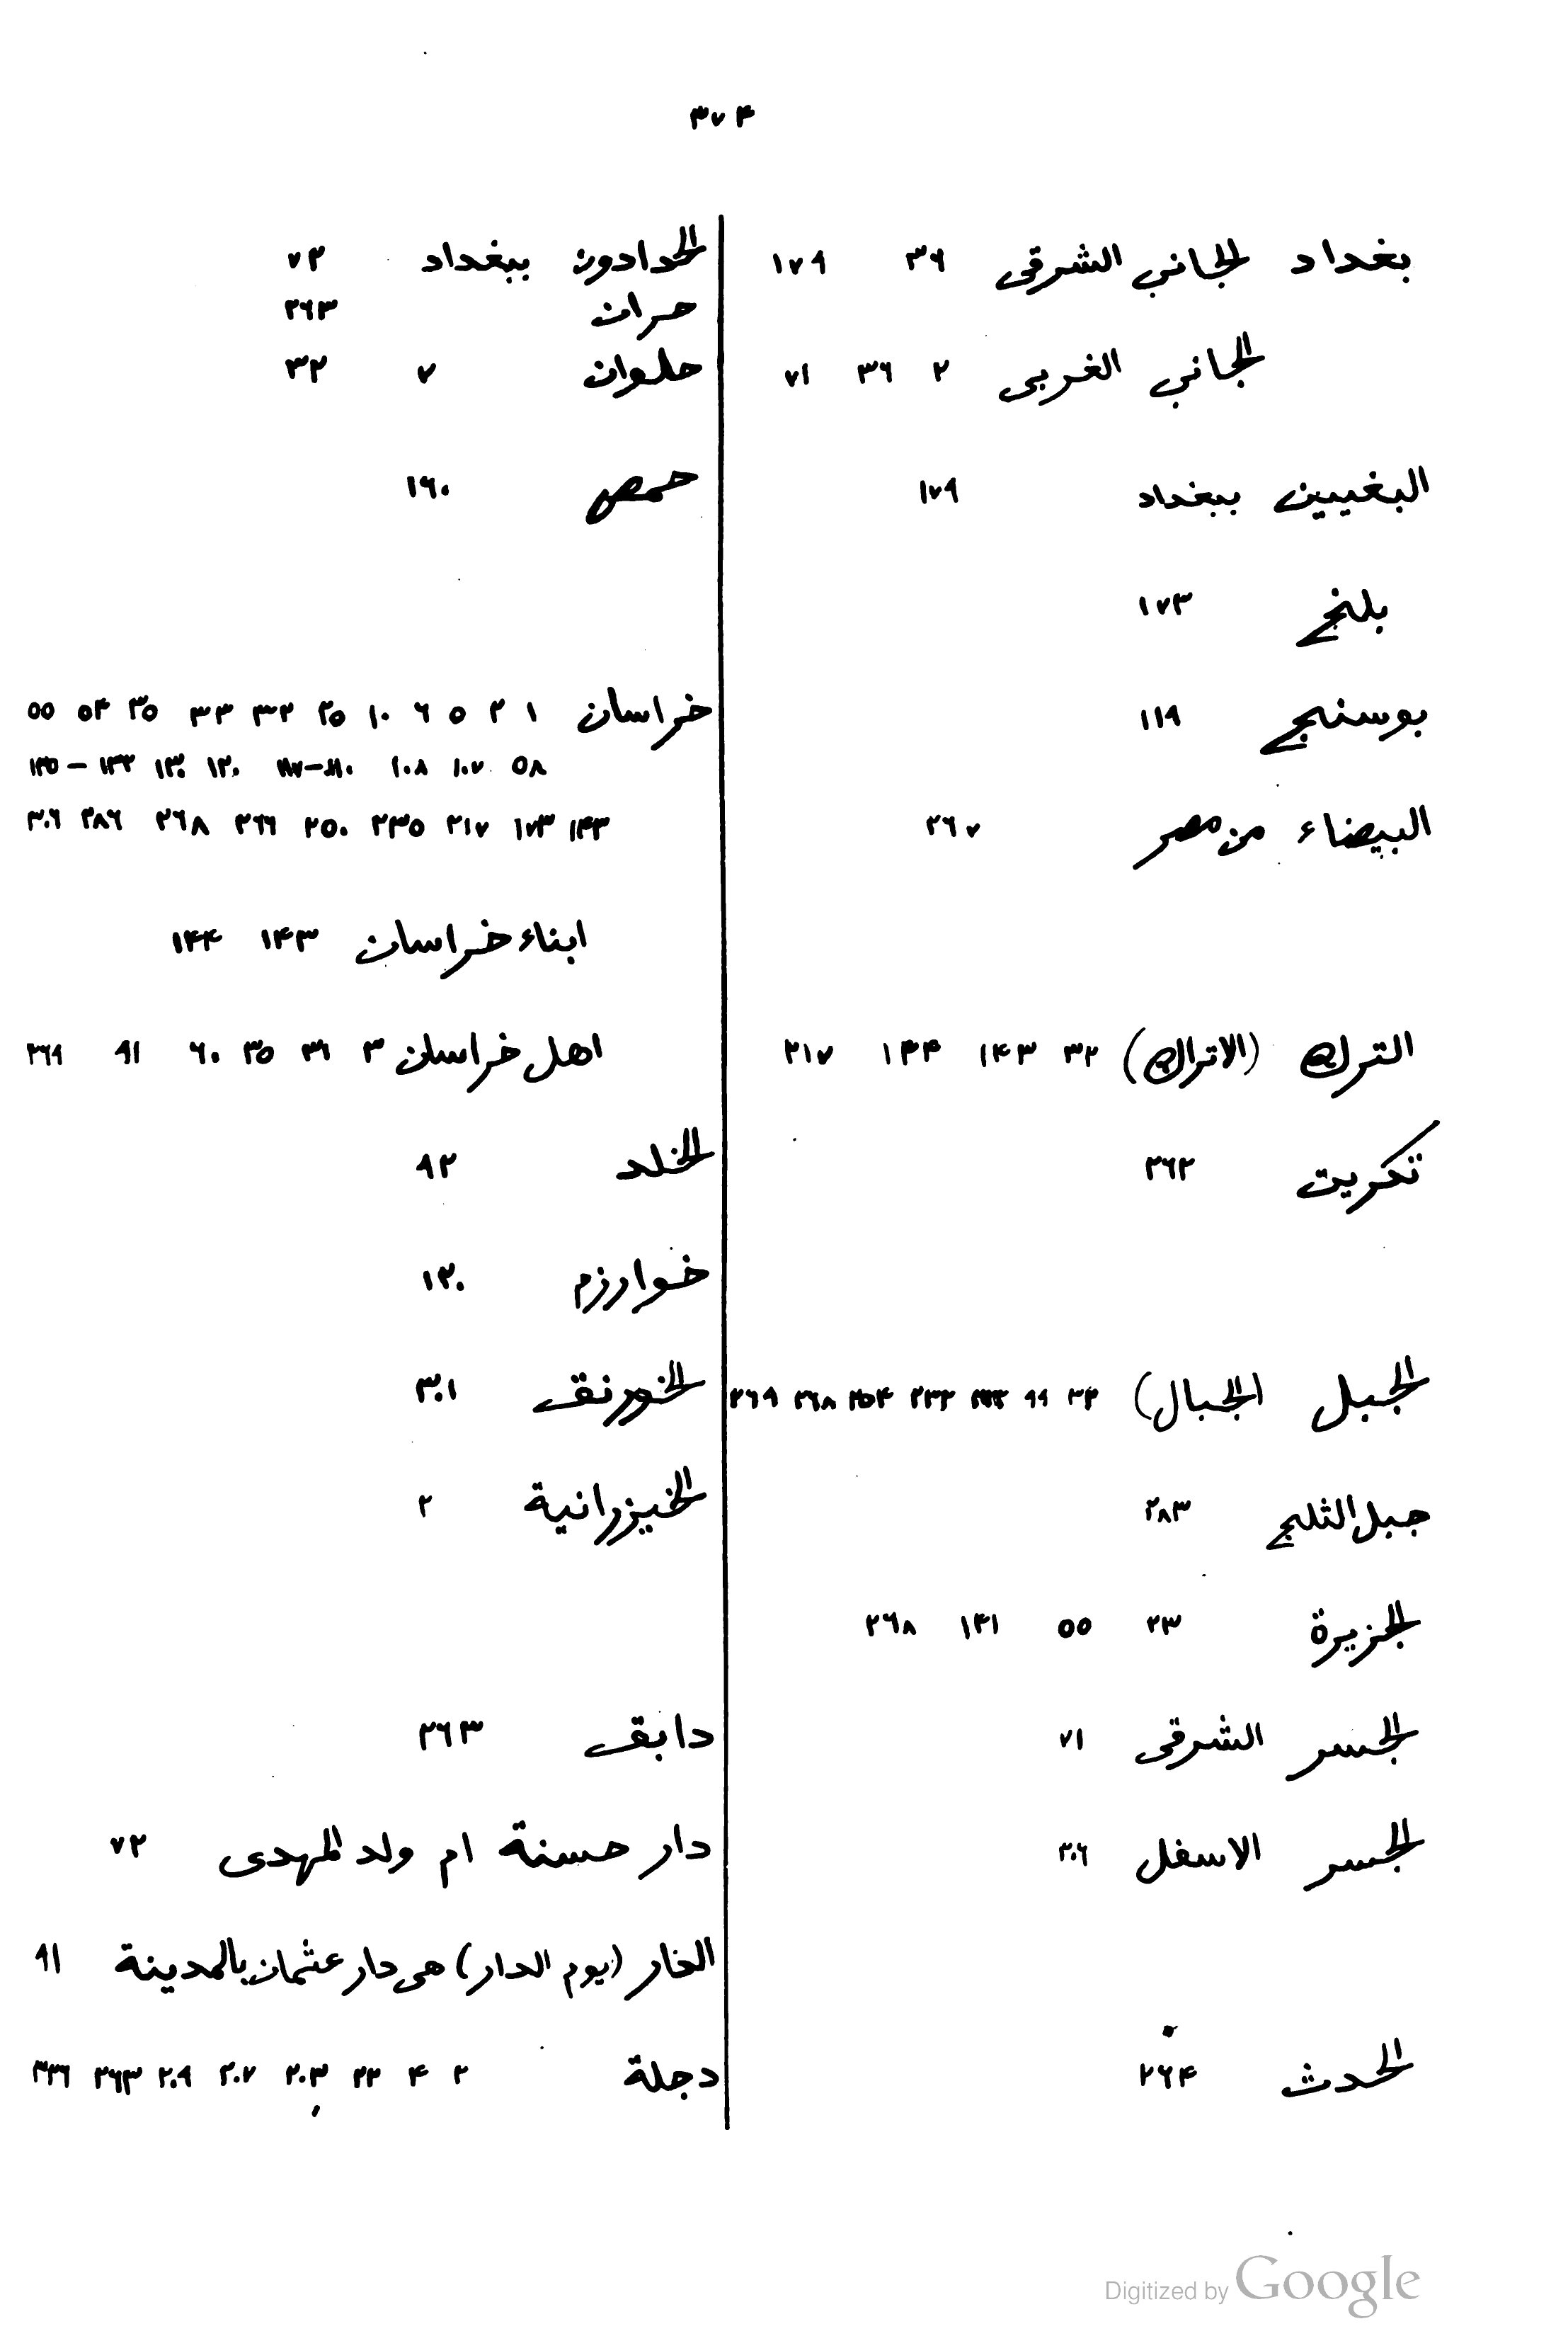 ٣٧٤
بغداد الجانب الشرقى ٣٦ ١٧٩
الجانب الغربى ٢ ٣٦ ٧١
البغيين ببغداد ١٧٩
بلنجر ١٧٣
بوسنج ١١٩
البيضاء من مصر ٢٦٧
الترك (الاتراك) ٣٢ ١٤٣ ١٤٤ ٢١٧
تكريت ٢٦٢
الجبل (الجبال) ٣٣ ٩٩ ٢٣٣ ٢٥٤ ٢٦٨ ٢٦٩
جبل الثلج ٢٨٣
الجزيرة ٢٣ ٥٥ ١٤١ ٢٦٨
الجسر الشرقى ٧١
الجسر الاسفل ٣٠٦
الحدث ٢٦٤
الحدادون ببغداد ٧٢
حران ٢٦٣
حلوان ٧ ٣٢
حمص ١٦٠
خراسان ١ ٢ ٥ ٦ ١٠ ٢٥ ٣٢ ٣٣ ٣٥ ٥٤ ٥٥
٥٨ ١٠٧ ١٠٨ ١٢٠ ١٣٠ ١٣٣ – ١٣٥
١٤٣ ١٧٣ ٢١٧ ٢٣٥ ٢٥٠ ٢٦٦ ٢٦٨ ٢٨٦ ٣٠٦
ابناء خراسان ١٤٣ ١٤٤
اهل خراسان ٣ ٣٦ ٣٥ ٦٠ ٩١ ٢٦٩
الخلد ٩٢
خوارزم ١٢٠
الخورنق ٣٠١
الخيزرانية ٢
دابق ٢٦٣
دار حسنة ام ولد المهدى ٧٢
الدار (يوم الدار) هى دار عثمان بالمدينة ٩١
دجلة ٢ ٤ ٢٢ ٢٠٣ ٢٠٧ ٢٠٩ ٢٦٣ ٣٣٦
Digitized by Google